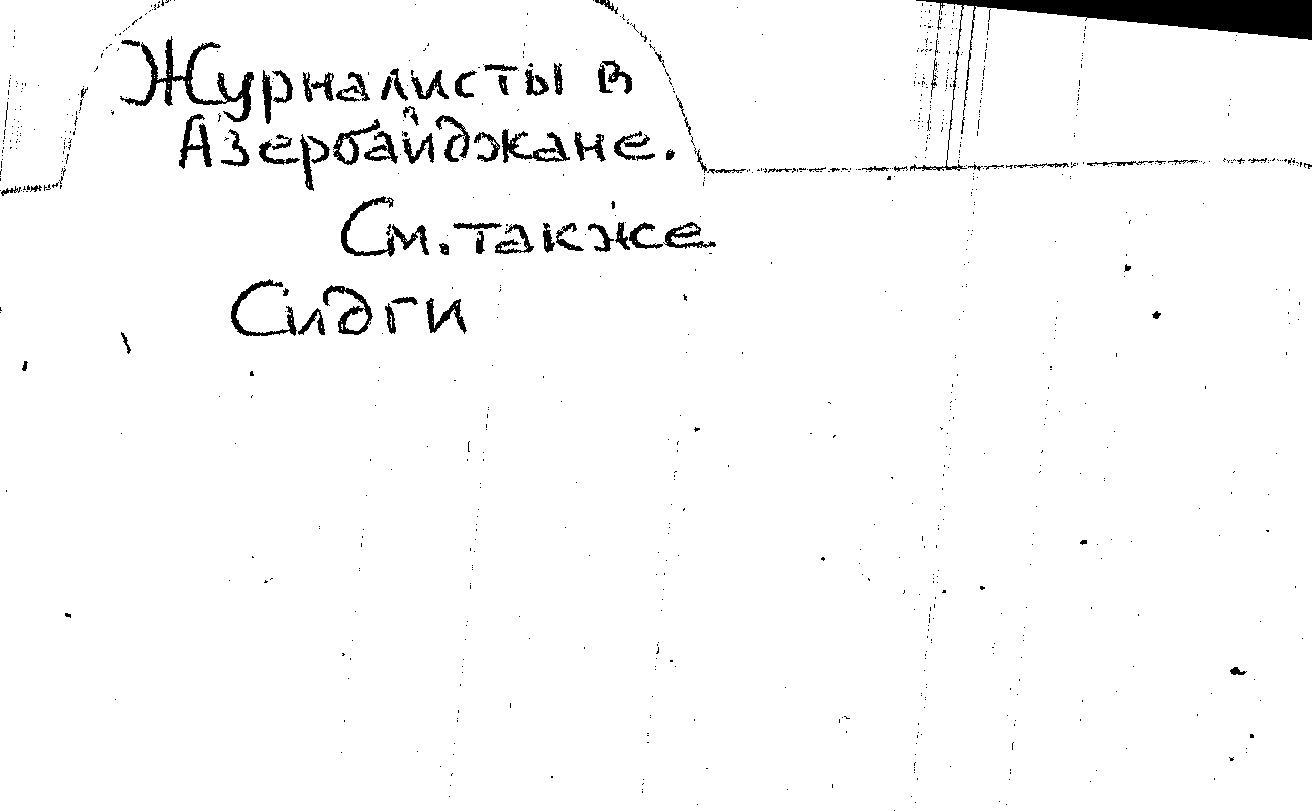 Журналисты в
Азербайджане.
См. также
Сидги